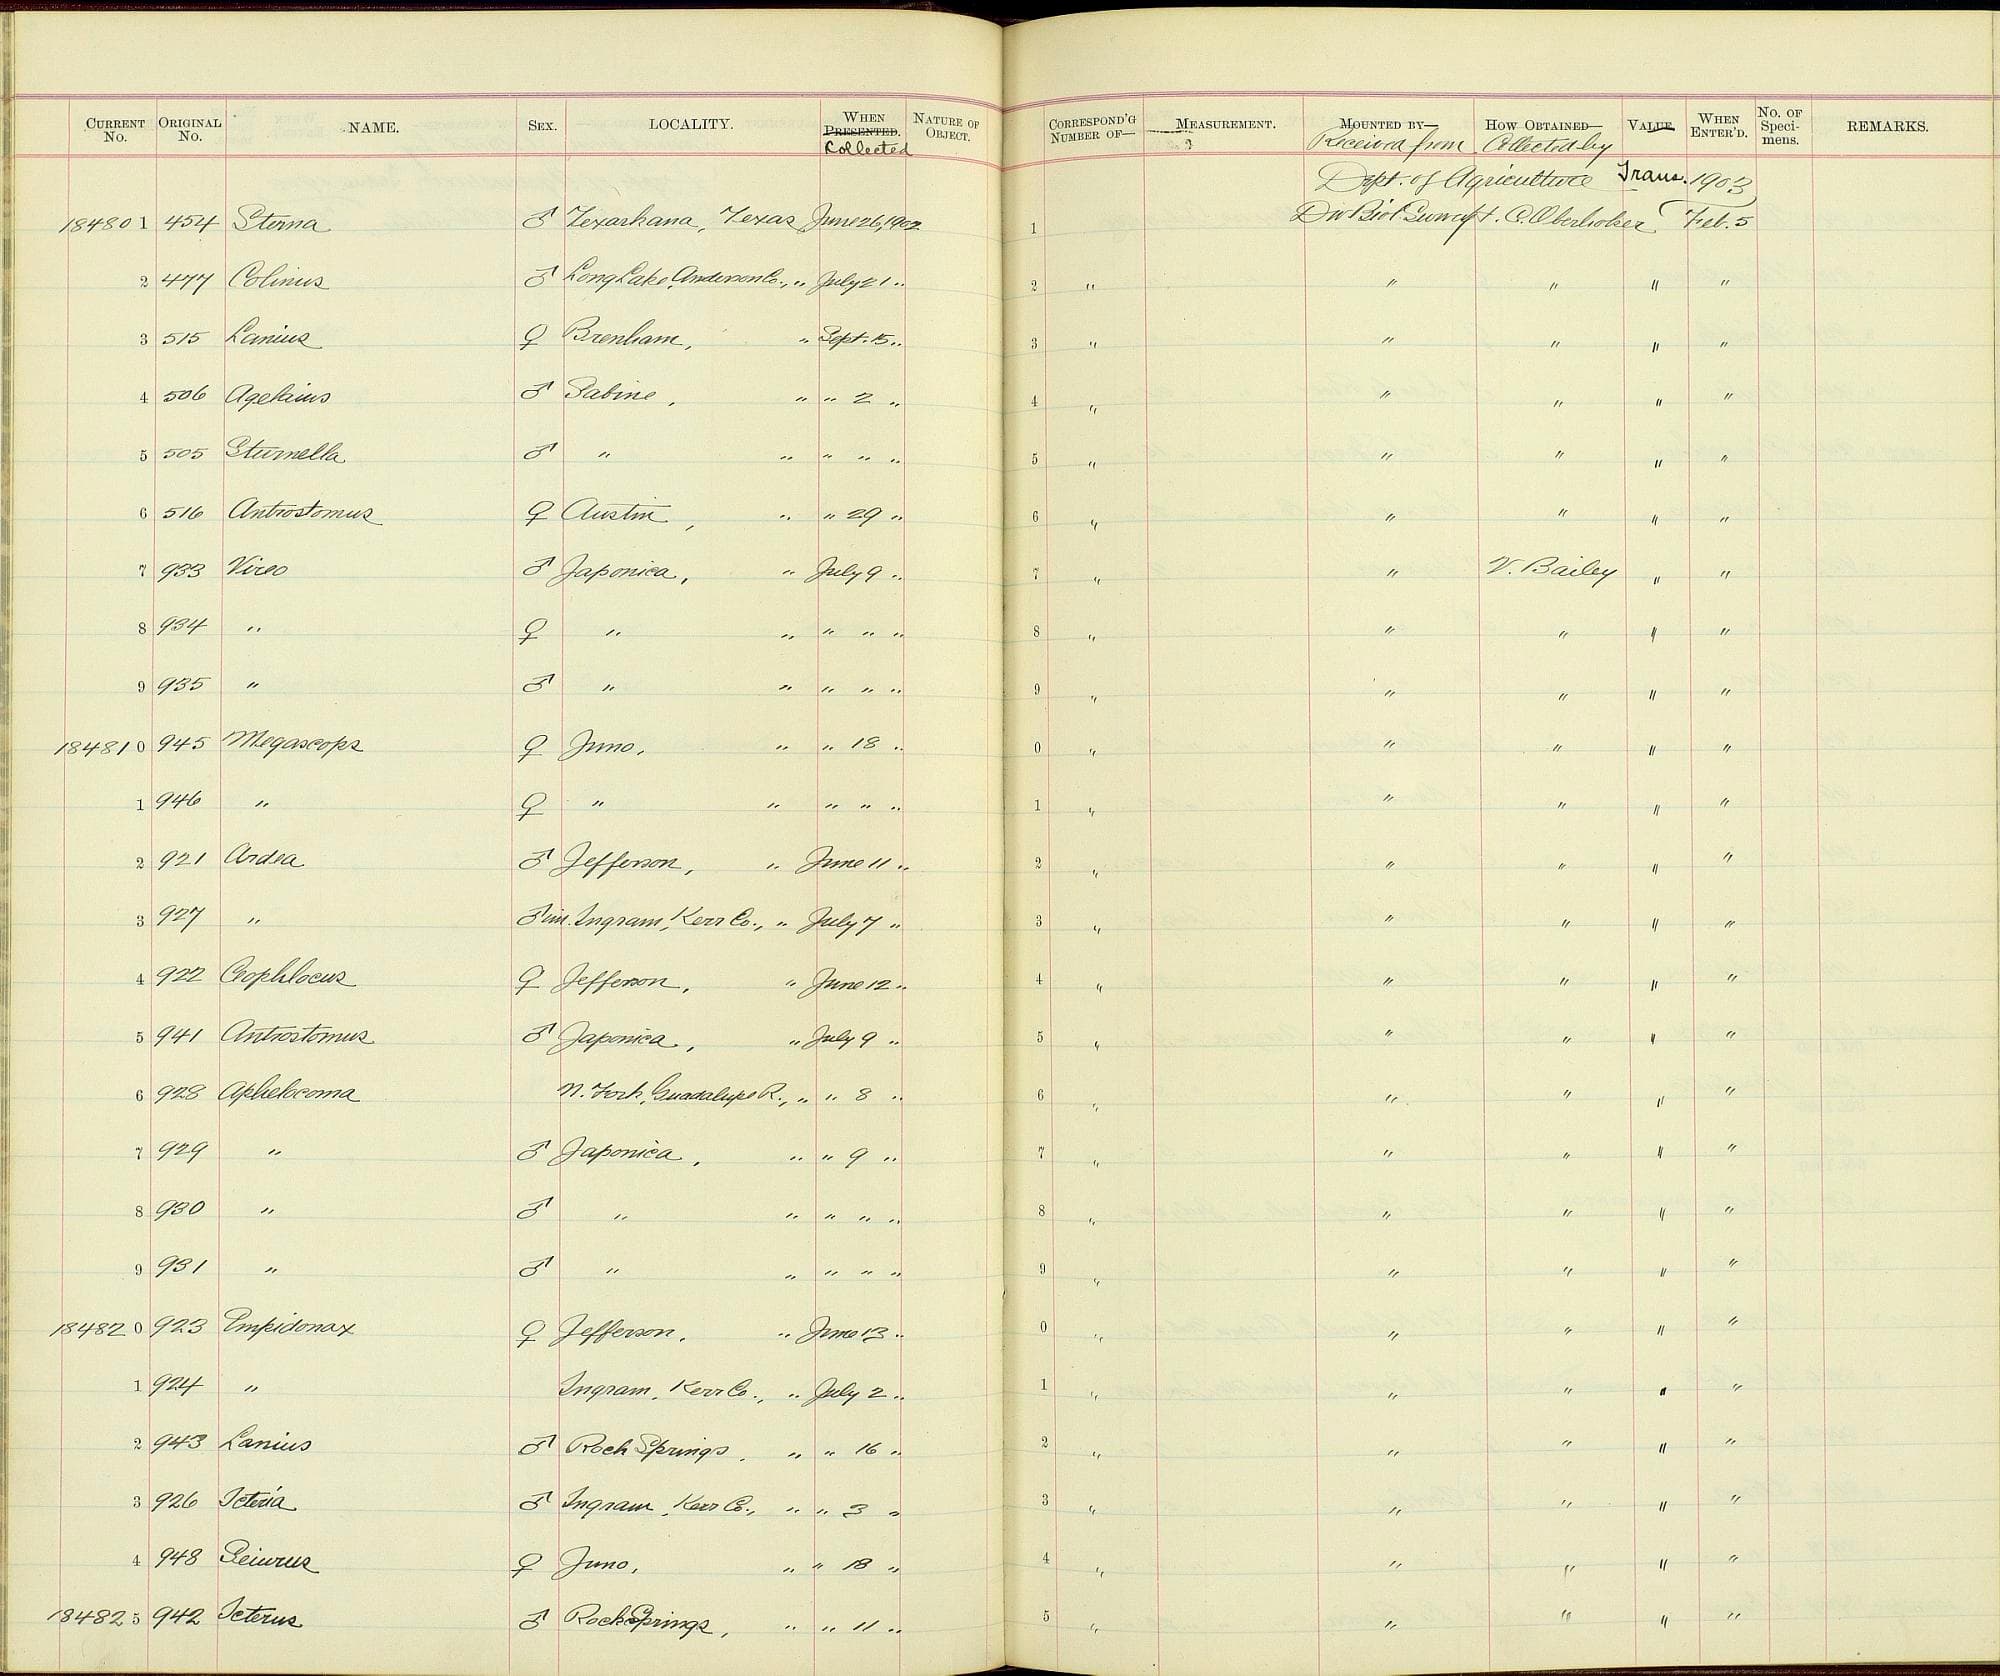 CURRENT No. ORIGINAL No. NAME. SEX. LOCALITY. WHEN PRESENTED. Collected NATURE OF OBJECT. CORRESPOND'G NUMBER OF— MEASUREMENT. MOUNTED BY— Received from HOW OBTAINED— Collected by VALUE. WHEN ENTER'D. No. OF Specimens. REMARKS.
Dept. of Agriculture Trans. 1903
184801 454 Sterna ♂ Texarkana, Texas June 26, 1902 1 Div Biol Survey H. C. Oberholser Feb. 5
2 477 Colinus ♂ Long Lake, Anderson Co., " July 21 " 2 " " " " "
3 515 Lanius ♀ Brenham, " Sept. 15 " 3 " " " " "
4 506 Agelaius ♂ Sabine, " " 2 " 4 " " " " "
5 505 Sturnella ♂ " " " " " 5 " " " " "
6 516 Antrostomus ♀ Austin, " " 29 " 6 " " " " "
7 933 Vireo ♂ Japonica, " July 9 " 7 " " V. Bailey " "
8 934 " ♀ " " " " " 8 " " " " "
9 935 " ♂ " " " " " 9 " " " " "
184810 945 Megascops ♀ Juno, " " 18 " 0 " " " " "
1 946 " ♀ " " " " " 1 " " " " "
2 921 Ardea ♂ Jefferson, " June 11 " 2 " " " " "
3 927 " ♂ im. Ingram, Kerr Co., " July 7 " 3 " " " " "
4 922 Ceophlocus ♀ Jefferson, " June 12 " 4 " " " " "
5 941 Antrostomus ♂ Japonica, " July 9 " 5 " " " " "
6 928 Aphelocoma N. Fork, Guadalupe R., " " 8 " 6 " " " " "
7 929 " ♂ Japonica, " " 9 " 7 " " " " "
8 930 " ♂ " " " " " 8 " " " " "
9 931 " ♂ " " " " " 9 " " " " "
184820 923 Empidonax ♀ Jefferson, " June 13 " 0 " " " " "
1 924 " Ingram, Kerr Co., " July 2 " 1 " " " " "
2 943 Lanius ♂ Rock Springs, " " 16 " 2 " " " " "
3 926 Icteria ♂ Ingram, Kerr Co., " " 3 " 3 " " " " "
4 948 Seiurus ♀ Juno, " " 18 " 4 " " " " "
184825 942 Icterus ♂ Rock Springs, " " 11 " 5 " " " " "